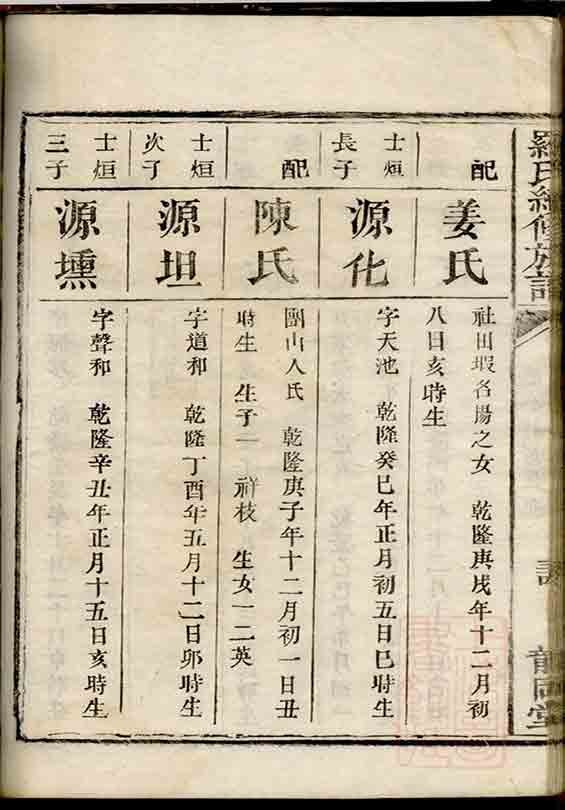 羅氏續修族譜
龍同堂
配
姜氏
社田瑕名揚之女 乾隆庚戌年十二月初
八日亥時生
士烜
長子
源化
字天池 乾隆癸巳年正月初五日巳時生
配
陳氏
團山人氏 乾隆庚子年十二月初一日丑
時生 生子一 祥枝 生女一二英
士烜
次子
源坦
字道和 乾隆丁酉年五月十二日卯時生
士烜
三子
源壎
字聲和 乾隆辛丑年正月十五日亥時生